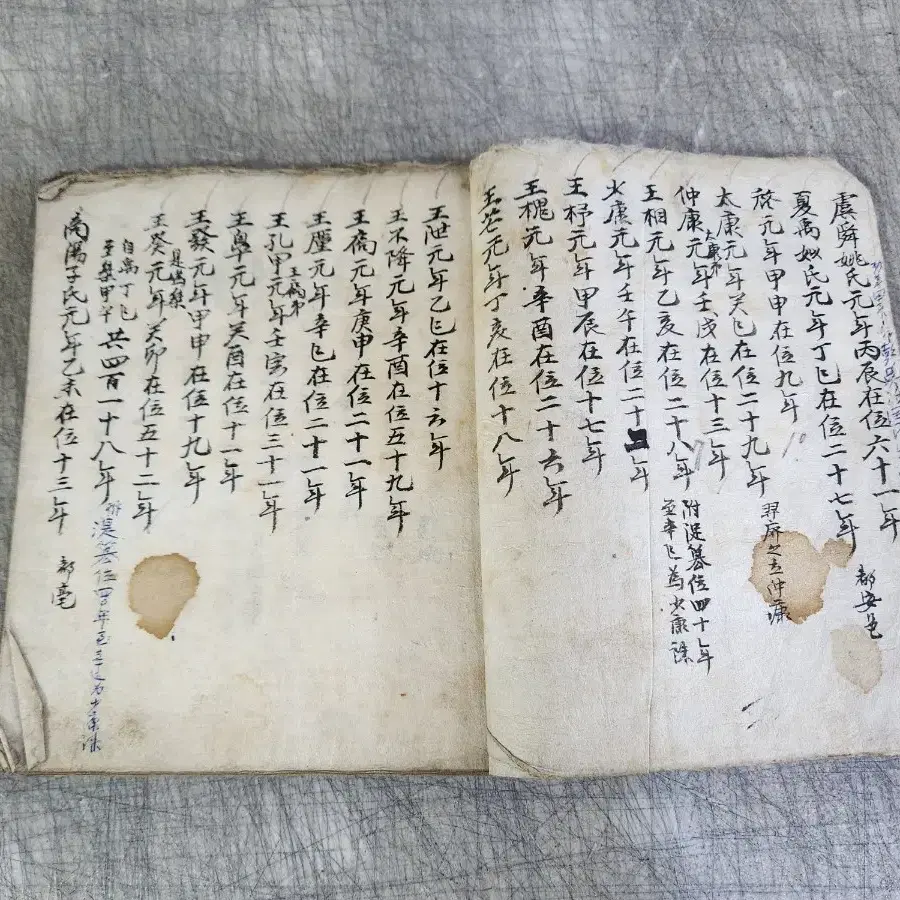 虞舜姚氏元年丙辰在位六十一年
夏禹姒氏元年丁巳在位二十七年 都安邑
啓元年甲申在位九年
太康元年癸巳在位二十九年 羿廃之立仲康
仲康元年壬戌在位十三年
太康弟
王相元年乙亥在位二十八年 附浞簒位四十年
至辛巳為少康誅
少康元年壬午在位二十年
王杼元年甲辰在位十七年
王槐元年辛酉在位二十六年
王芒元年丁亥在位十八年
王泄元年乙巳在位十六年
王不降元年辛酉在位五十九年
王扃元年庚申在位二十一年
王厪元年辛巳在位二十一年
王孔甲元年壬寅在位三十一年
王皐元年癸酉在位十一年
王發元年甲申在位十九年
王癸元年癸卯在位五十二年
是為桀
自禹丁巳
至桀甲午 共四百一十八年
商湯子氏元年乙未在位十三年 都亳